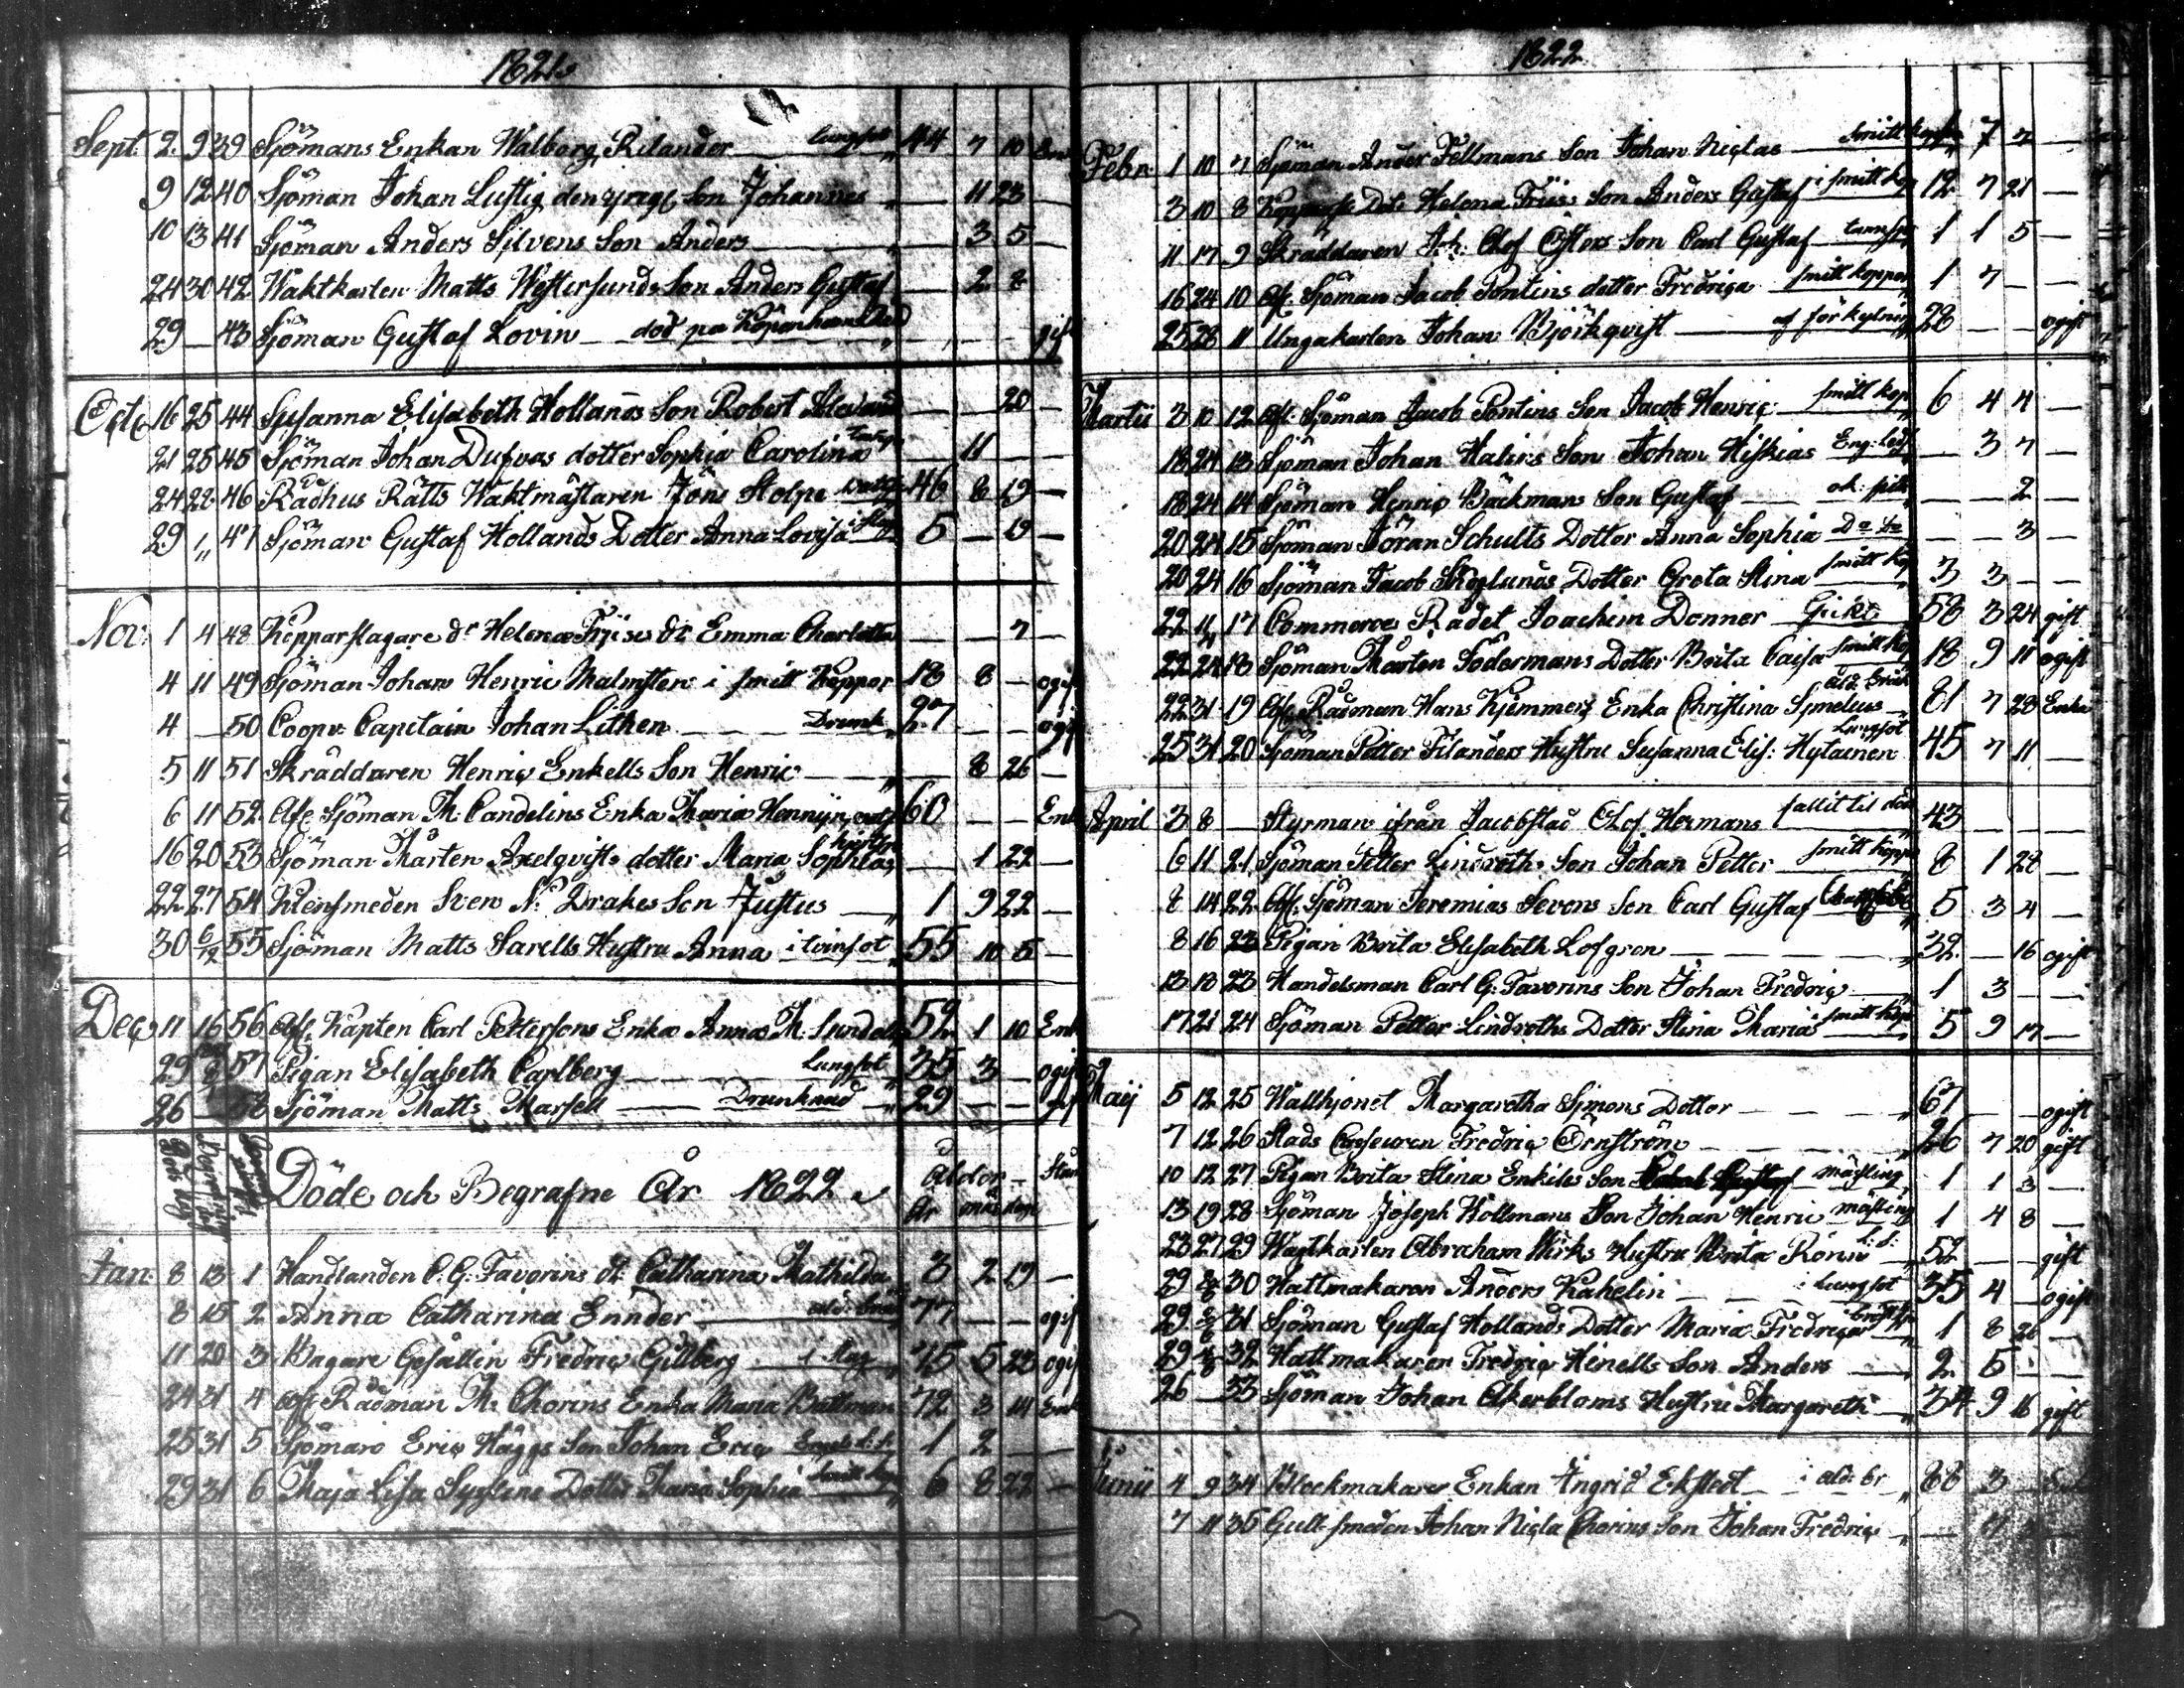 1821.
Sept. 2. 9 39 Sjömans Enkan Walborg Rilander lungsot 44 7 10 Enk
9 12 40 Sjöman Johan Lustig den yregr Son Johannes — 11 23 —
10 13 41 Sjöman Anders Silvens Son Anders — 3 5 —
24 30 42 Waktkarlen Matts Westersunds Son Anders Gustaf — 2 8
29 — 43 Sjöman Gustaf Lovin död på gift
Octr 16 25 44 Susanna Elisabeth Hollands Son Robert — — 20 —
21 25 45 Sjöman Johan Dufvas dotter Sophia Carolina — 11 — —
24 28 46 Rådhus Rätts Waktmästaren Jöns Stolpe 46 8 19 —
29 „ 47 Sjöman Gustaf Hollands Dotter Anna Lovisa i slag 5 — 19 —
Nov: 1 4 48 Kopparslagare dr Helena Frises dr Emma Charlotta — — 7 —
4 11 49 Sjöman Johan Henric Malmsten i smitt koppor 18 8 — ogift
4 — 50 Coopv. Capitain Johan Lithen Drunk 27 — — ogif
5 11 51 Skräddaren Henric Enkells Son Henric — 8 26 —
6 11 52 Afl. Sjöman M. Candelins Enka Maria 60 — — Enk
16 20 53 Sjöman Mårten Axelqvists dotter Maria Sophia — 1 22 —
22 27 54 Klensmeden Sven N. Drakes Son Justus 1 9 22 —
30 6/12 55 Sjöman Matts Sarells Hustru Anna i tvinsot 55 10 5 —
Dec 11 16 56 Afl. Kapten Carl Pettersons Enka Anna M. 52 1 10 Enk
29 57 Pigan Elisabeth Carlberg Lungsot 35 3 — ogif
26 — 58 Sjöman Matts Marsell Drunknad 29 — —
Döde och Begrafne År 1822
Ålder
År mån dag
Jan: 8 13 1 Handlanden C. G. Favorins dr Catharina Mathilda 3 2 19 —
8 15 2 Anna Catharina Ennder 77 — — ogif
11 20 3 Bagare Gesällen Fredric Gillberg i slag 45 5 23 ogif
24 31 4 afl. Rådman M. Chorins Enka Maria Battman 72 3 14 Enk
25 31 5 Sjöman Eric Häggs Son Johan Eric 1 2 — —
29 31 6 Maja Lisa Dotter Maria Sophia smitt kop 6 8 22 —
1822
Febr. 1 10 7 Sjöman Ander Fellmans Son Johan Niclas smitt koppor 7 7 —
3 10 8 Dotr Helena Friis Son Anders Gustaf i smitt kop 12 7 21 —
11 17 9 Skräddaren Joh. Olof Östers Son Carl Gustaf 1 1 5 —
16 24 10 Afl. Sjöman Jacob Pontins dotter Fredrica smitt koppor 1 7 — —
25 28 11 Ungakarlen Johan Björkqvist af förkylning 28 — — ogift
Martii 3 10 12 Afl. Sjöman Jacob Pontins Son Jacob Henric smitt kop 6 4 4 —
18 24 13 Sjöman Johan Halins Son Johan Hiskias — 3 7 —
18 24 14 Sjöman Henric Bäckmans Son Gustaf — — 2 —
20 24 15 Sjöman Jöran Schults Dotter Anna Sophia Do Do — — 3 —
20 24 16 Sjöman Jacob Skoglunds Dotter Greta Stina smitt kop 3 3 — —
22 17 Commerce Rådet Joachim Donner Gickt 58 3 24 gift
22 24 18 Sjöman Mårten Södermans Dotter Brita Caisa smitt kop 18 9 11 ogift
22 31 19 Afl. Rådman Hans Kjemmers Enka Christina Symelius 81 7 23 Enka
25 31 20 Sjöman Petter Filanders Hustru Susanna Elis: Hytainen Lungsot 45 7 11 —
April 3 8 — Styrman ifrån Jacobstad Olof Hermans fallit til död 43 — — —
6 11 21 Sjöman Petter Lindroths Son Johan Petter smitt koppor 8 1 28 —
8 14 22 Afl. Sjöman Jeremias Sevons Son Carl Gustaf 5 3 4 —
8 16 23 Pigan Brita Elisabeth Lofgren 32 — 16 ogift
13 18 23 Handelsman Carl G. Favorins Son Johan Fredric 1 3 — —
17 21 24 Sjöman Petter Lindroths Dotter Stina Maria smitt kop 5 9 17 —
Maij 5 12 25 Wallhjonet Margaretha Simons Dotter 67 — — ogift
7 12 26 Stads Casseuren Fredric Örnström 26 7 20 gift
10 12 27 Pigan Brita Stina Enkiles Son mässling 1 1 3 —
13 19 28 Sjöman Joseph Wollmans Son Johan Henric mässling 1 4 8 —
23 27 29 Wagtkarlen Abraham Wirks Hustru Brita Rönn 52 — — gift
29 30 Hattmakaren Anders Kahelin i lungsot 35 4 — ogift
29 31 Sjöman Gustaf Hollands Dotter Maria Fredrica 1 8 26 —
29 32 Hattmakaren Fredric Hinells Son Anders 2 5 — —
26 — 33 Sjöman Johan Åkerbloms Hustru Margareth 34 9 16 gift
Junii 4 9 34 Blockmakare Enkan Ingrid Ekstedt i åld. br 88 3 —
7 11 35 Gullsmeden Johan Nicla Chorins Son Johan Fredric